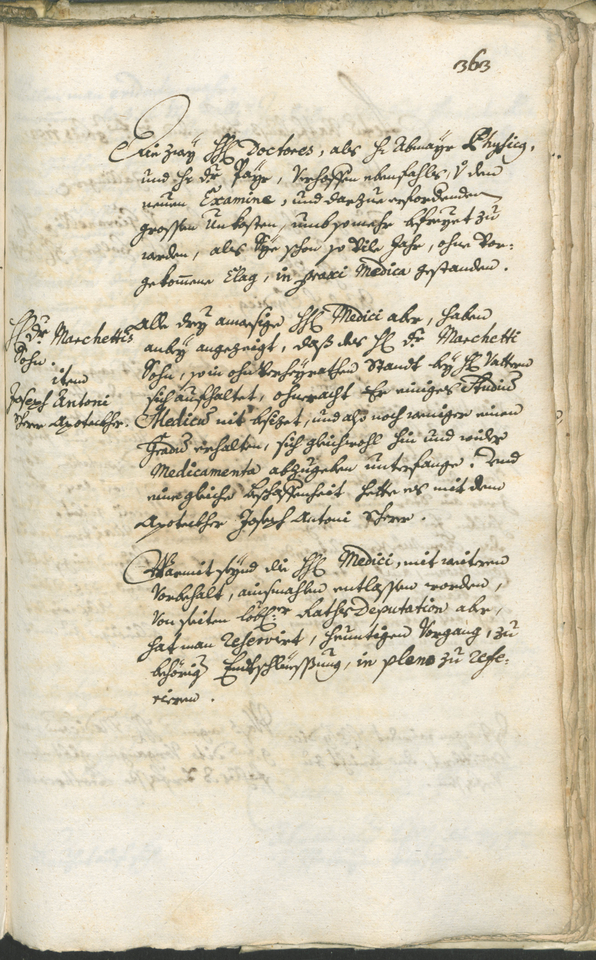 363
Die zway HH. Doctores, als H. Abmayr Physicg,
und H. Dr. Payr, verhoffen ebenfahls, v. dem
neuen Examine, und darzue erfordenden
grossen Unkosten, umb so mehr befreyet zu
werden, als Sye schon so vile Jahr, ohne vor-
gekom̄ene Clag, in praxi Medica gestanden.
H. Dr. Marchettis
Sohn.
item
Joseph Antoni
Scherr Apoteckher.
Alle drey anwesige HH. Medici aber, haben
anbey angezeigt, daß des H. Dr. Marchetti
Sohn, so in ohnverheyrathen Standt bey H. Vattern
sich aufhaltet, ohneracht Er einiges Studiū
Medicū nit besizet, und also noch weniger einen
Gradū erhalten, sich gleichwohl hin und wider
Medicamenta abzugeben unterfange. Und
eine gleiche beschaffenheit hette es mit dem
Apoteckher Joseph Antoni Scherr.
Warmit seynd die HH. Medici, mit weitern
Vorbehalt, ainsmahlen entlassen worden,
Von seiten löbl.r Raths Deputation aber,
hat man reservirt, heuntigen Vorgang, zu
behörig Entschliessung, in pleno zu refe-
rieren.